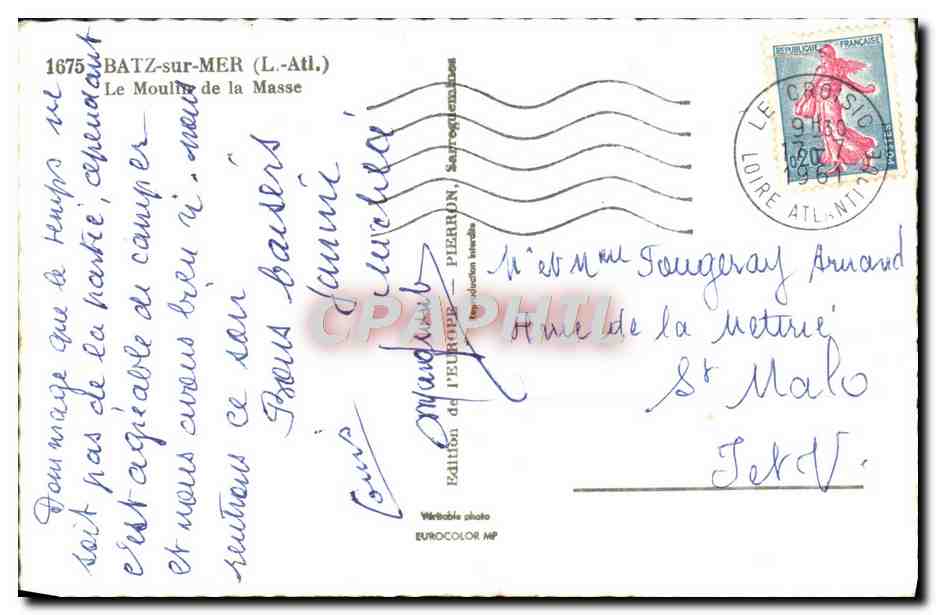 1675 BATZ-sur-MER (L.-Atl.)
Le Moulin de la Masse
Dommage que le temps ne
soit pas de la partie, cependant
c'est agréable de camper
et nous avons bien ri. nous
rentrons ce soir
Bons baisers
Annie
Michel
Louis
Edition de l'EUROPE — PIERRON, Sarreguemines
Reproduction interdite
REPUBLIQUE FRANÇAISE
POSTES
0,20
LE CROISIC
9H30
1961
LOIRE ATLANTIQUE
Mr et Mme Fougeray Armand
de la Metrie
St Malo
I et V.
CPAPHIL
Véritable photo
EUROCOLOR MP